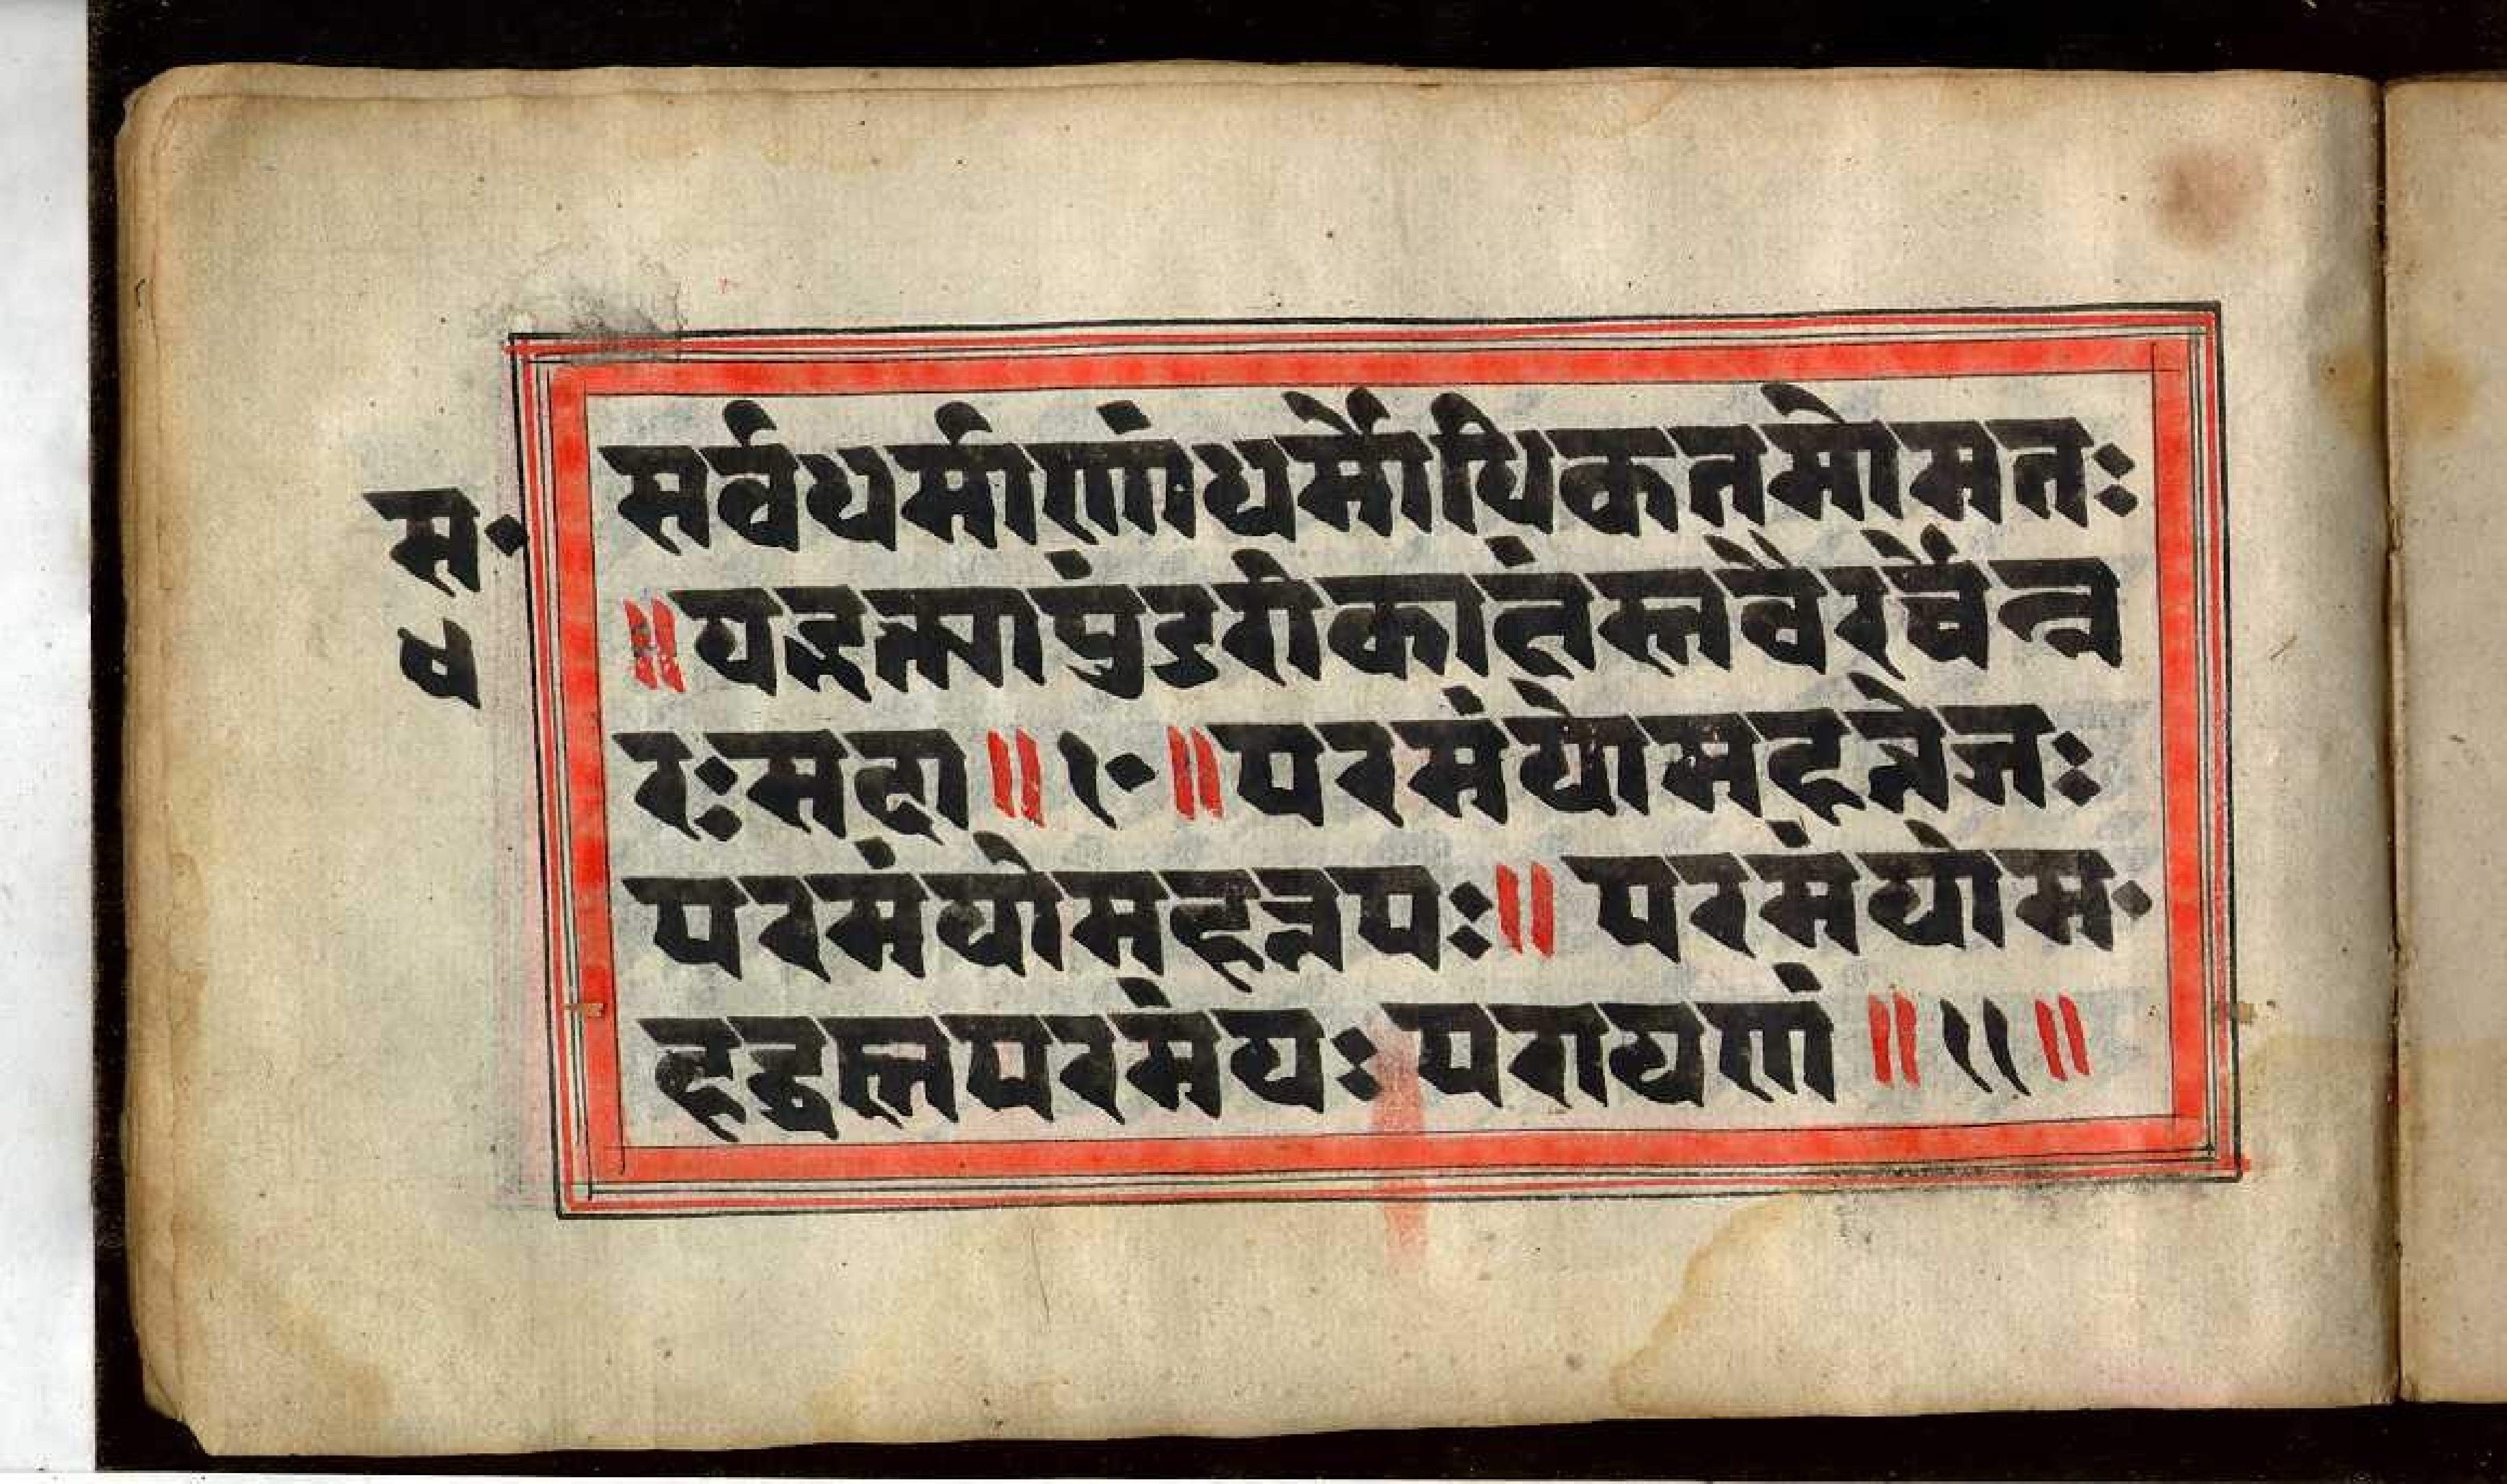 सर्वधर्माणांधर्मोधिकतमोमतः
॥यद्भक्त्यापुंडरीकाक्षंस्तवैरर्चेन्न
रःसदा॥१०॥परमंयोमहत्तेजः
परमंयोमहत्तपः॥परमंयोम॰
हद्ब्रह्मपरमंयः परायणं॥११॥
स॰